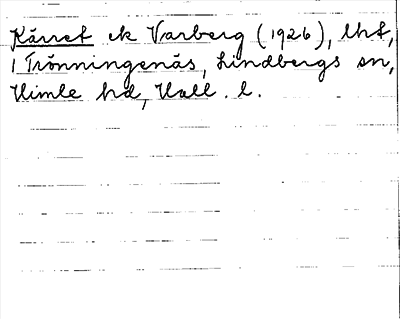 Kärret ek Varberg (1926), lht,
i Trönningenäs, Lindbergs sn,
Himle hd, Hall. l.